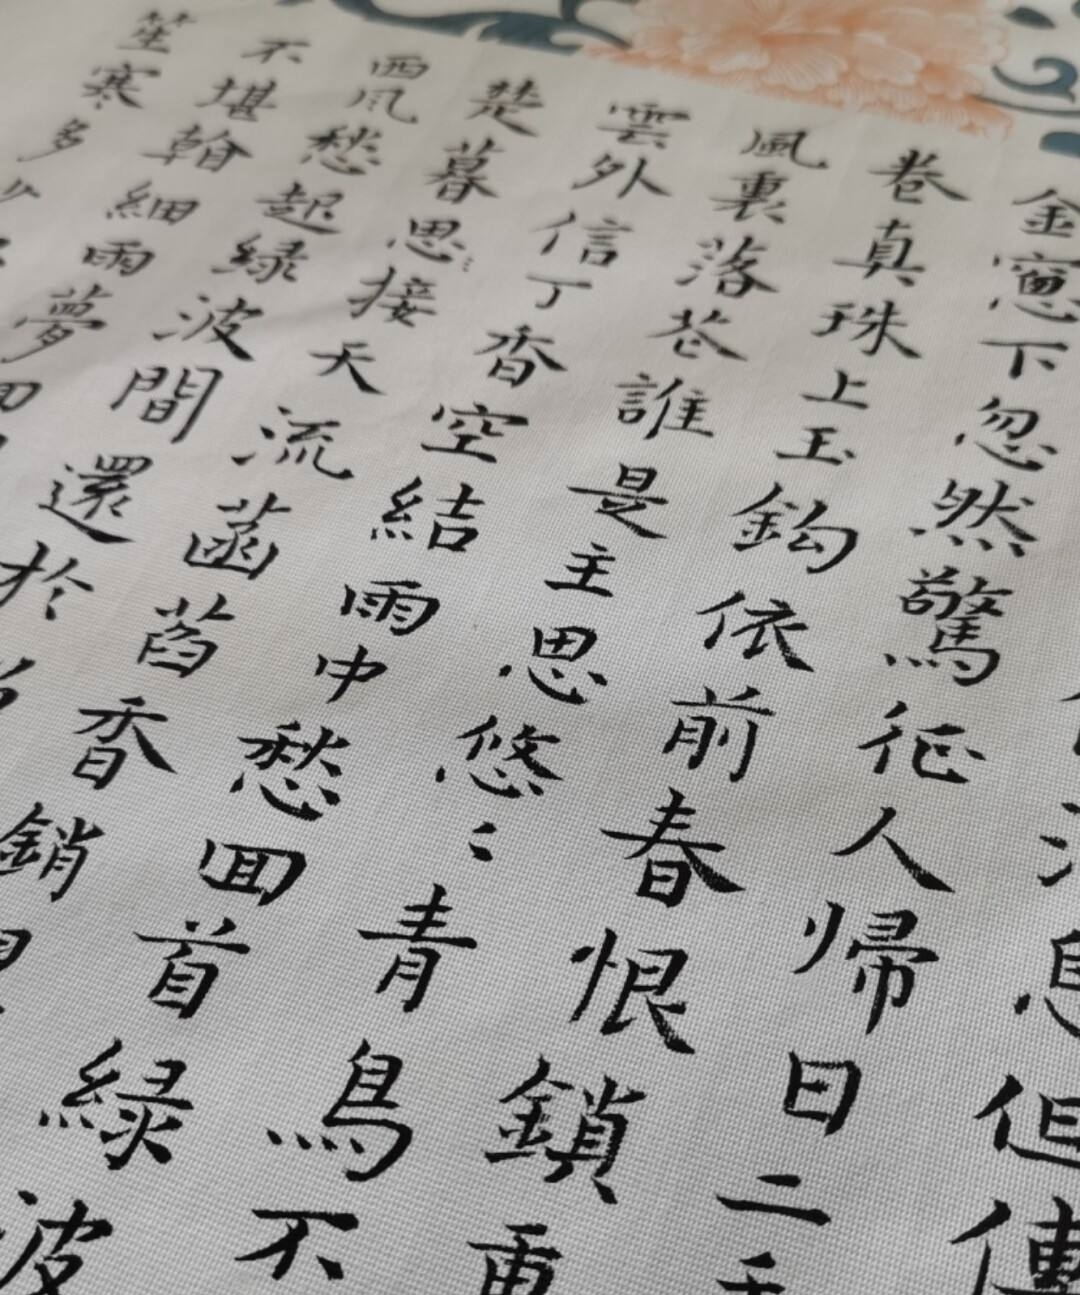 息但傳
金窻下忽然驚征人帰日二
卷真珠上玉鈎依前春恨鎖重
風裏落花誰是主思悠〻青鳥不
雲外信丁香空結雨中愁回首綠波
楚暮思接天流菡萏香銷
西風愁起綠波間還於
不堪看細雨夢回
笙寒多少